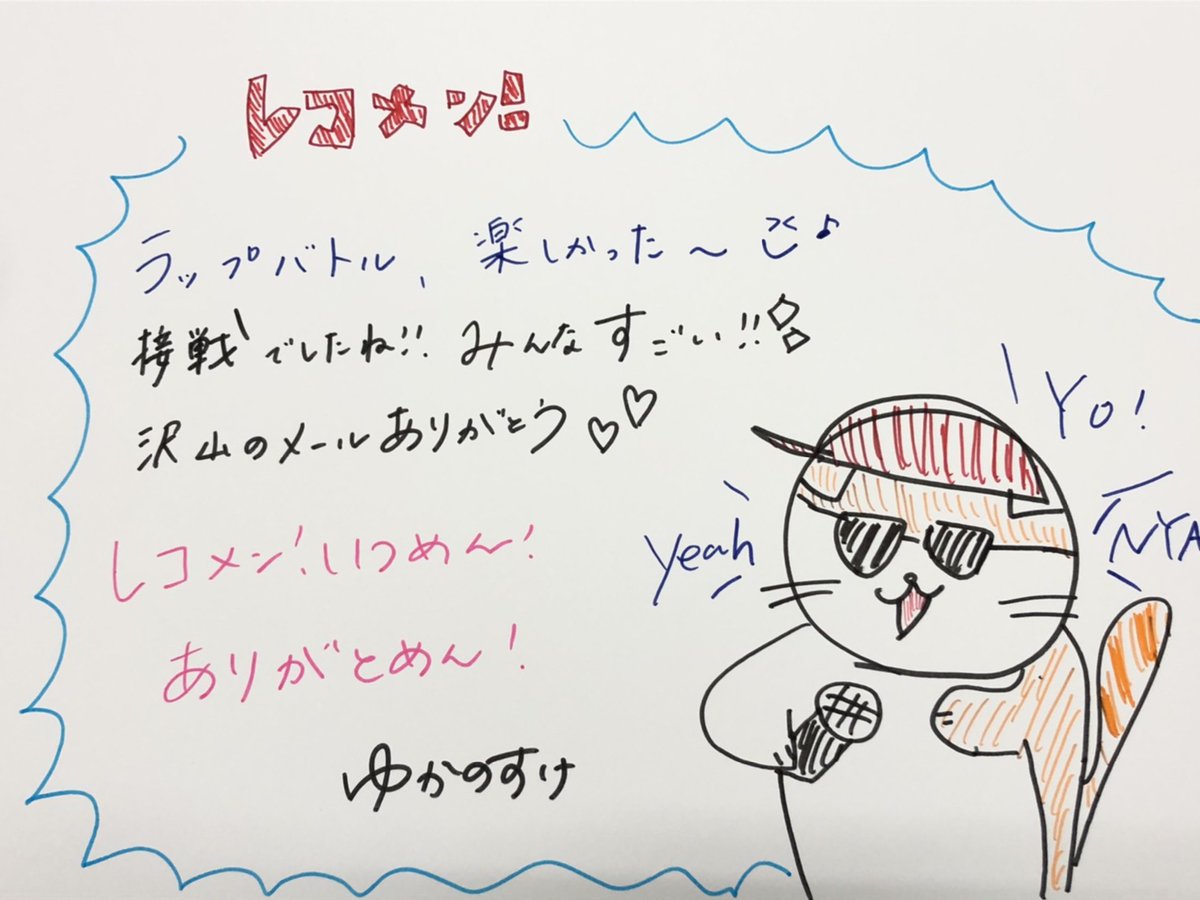 レコメン!
ラップバトル、楽しかった〜♪
接戦でしたね!! みんなすごい!!
沢山のメールありがとう♡♡
レコメン!いつめん!
ありがとめん!
ゆかのすけ
Yo!
Yeah
NYA